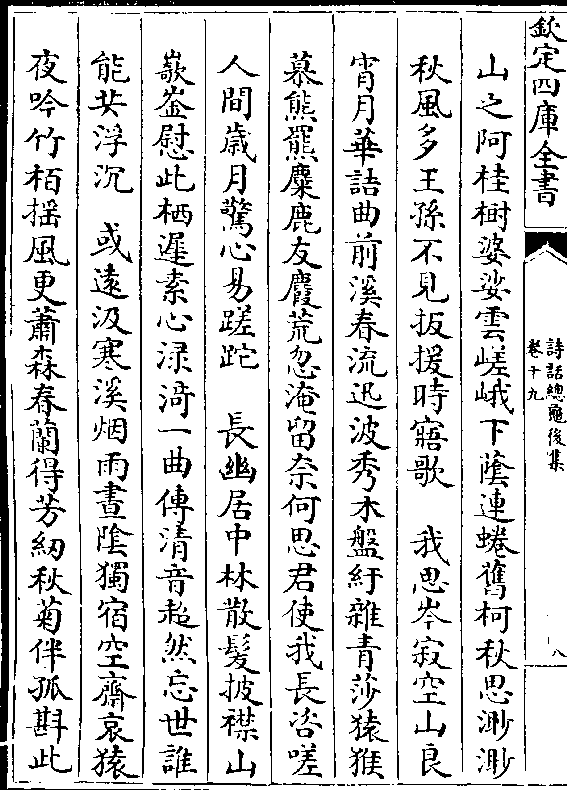 欽定四庫全書
詩話總龜後集
卷十九
八
山之阿桂樹婆娑雲嵯峨下蔭連蜷舊柯秋思渺渺
秋風多王孫不見扳援時寤歌　我思岑寂空山良
宵月華詰曲前溪春流迅波秀木盤紆雜青莎猿猴
慕熊羆麋鹿友麚荒忽淹留奈何思君使我長咨嗟
人間歲月驚心易蹉跎　長幽居中林散髮披襟山
嶔崟慰此栖遲素心渌漪一曲傳清音超然忘世誰
能共浮沉　或遠汲寒溪烟雨晝陰獨宿空齋哀猿
夜吟竹栢揺風更蕭森春蘭得芳紉秋菊伴孤斟此